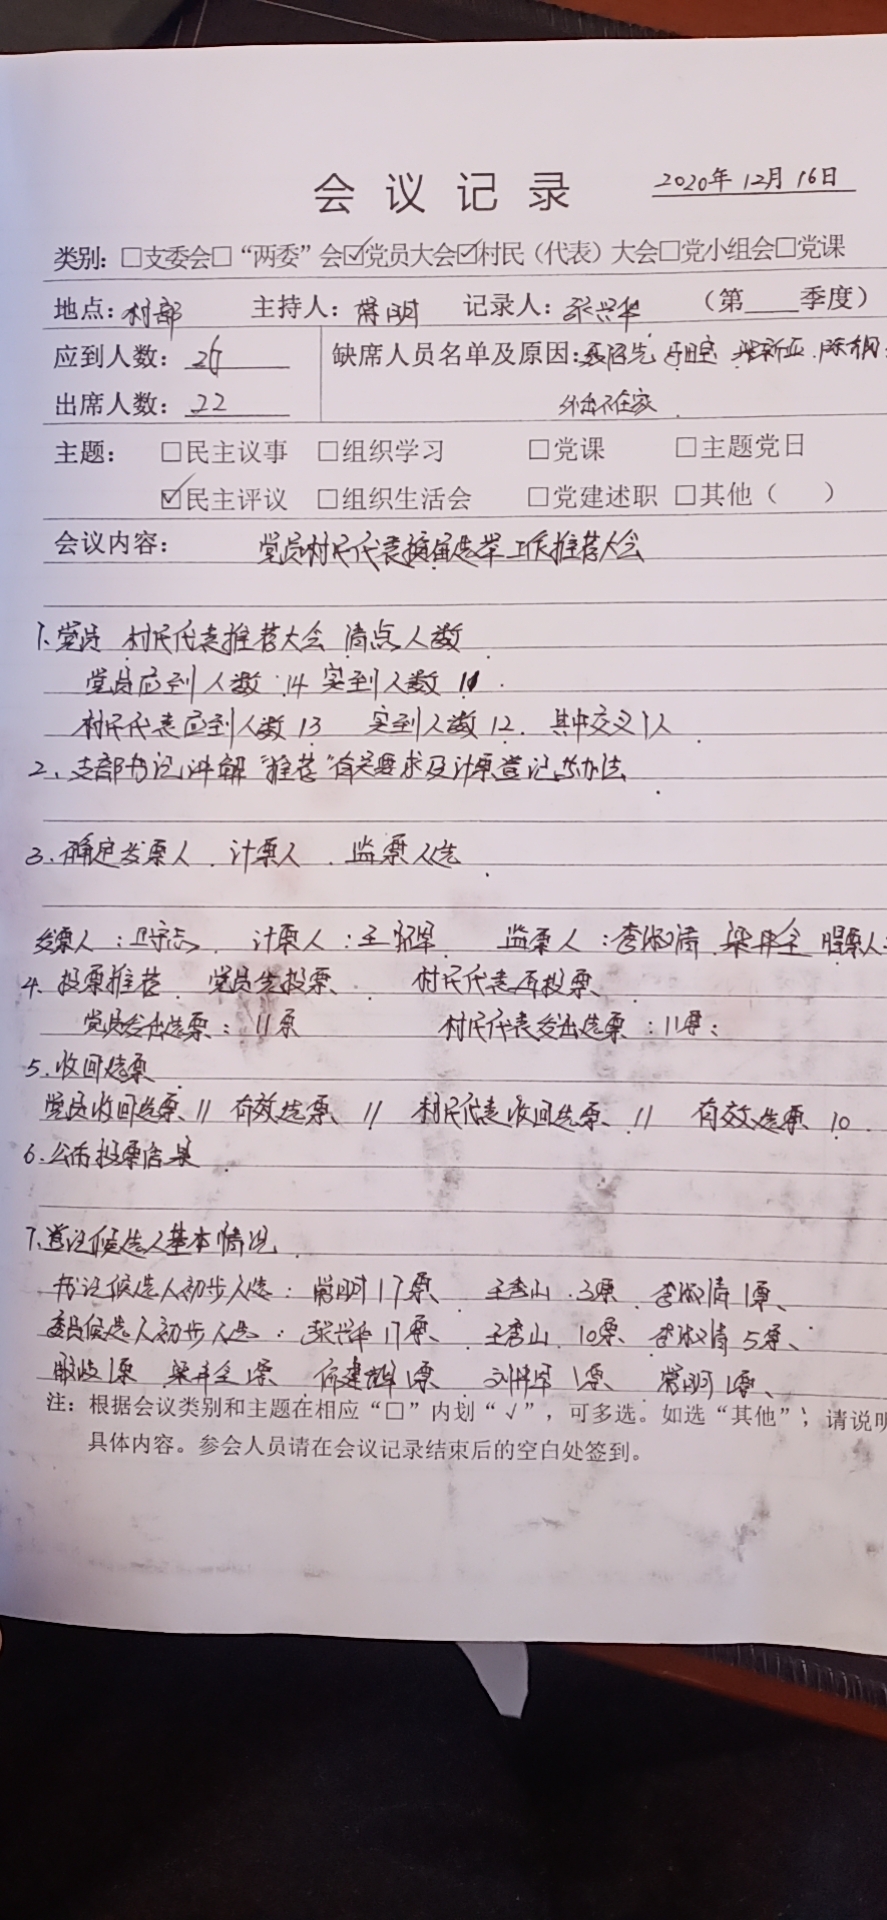 会议记录 2020年12月16日
类别：□支委会□“两委”会☑党员大会☑村民（代表）大会□党小组会□党课
地点：村部 主持人：常明 记录人：张兴华 （第 季度）
应到人数：26 缺席人员名单及原因：
出席人数：22 外出不在家
主题： □民主议事 □组织学习 □党课 □主题党日
☑民主评议 □组织生活会 □党建述职 □其他（ ）
会议内容： 党员村民代表换届选举工作推荐大会
1.党员 村民代表推荐大会 清点人数
党员应到人数 14 实到人数 11.
村民代表应到人数13 实到人数12. 其中交叉1人
2、支部书记讲解“推荐”有关要求及计票登记办法
3.确定发票人.计票人.监票人选
发票人： 计票人：王 监票人：李淑清
4、投票推荐. 党员先投票、 村民代表再投票、
党员发出选票：11票 村民代表发出选票：11票；
5.收回选票
党员收回选票、11 有效选票、11 村民代表收回选票、11 有效选票 10.
6.公布投票结果
7.登记候选人基本情况.
书记候选人初步人选：常明17票、王秀山.3票.李淑清1票、
委员候选人初步人选：张兴华17票、王秀山.10票、李淑清5票、
1票 1票 何建辉1票、 1票、 常明1票、
注：根据会议类别和主题在相应“□”内划“√”，可多选。如选“其他”，请说明
具体内容。参会人员请在会议记录结束后的空白处签到。